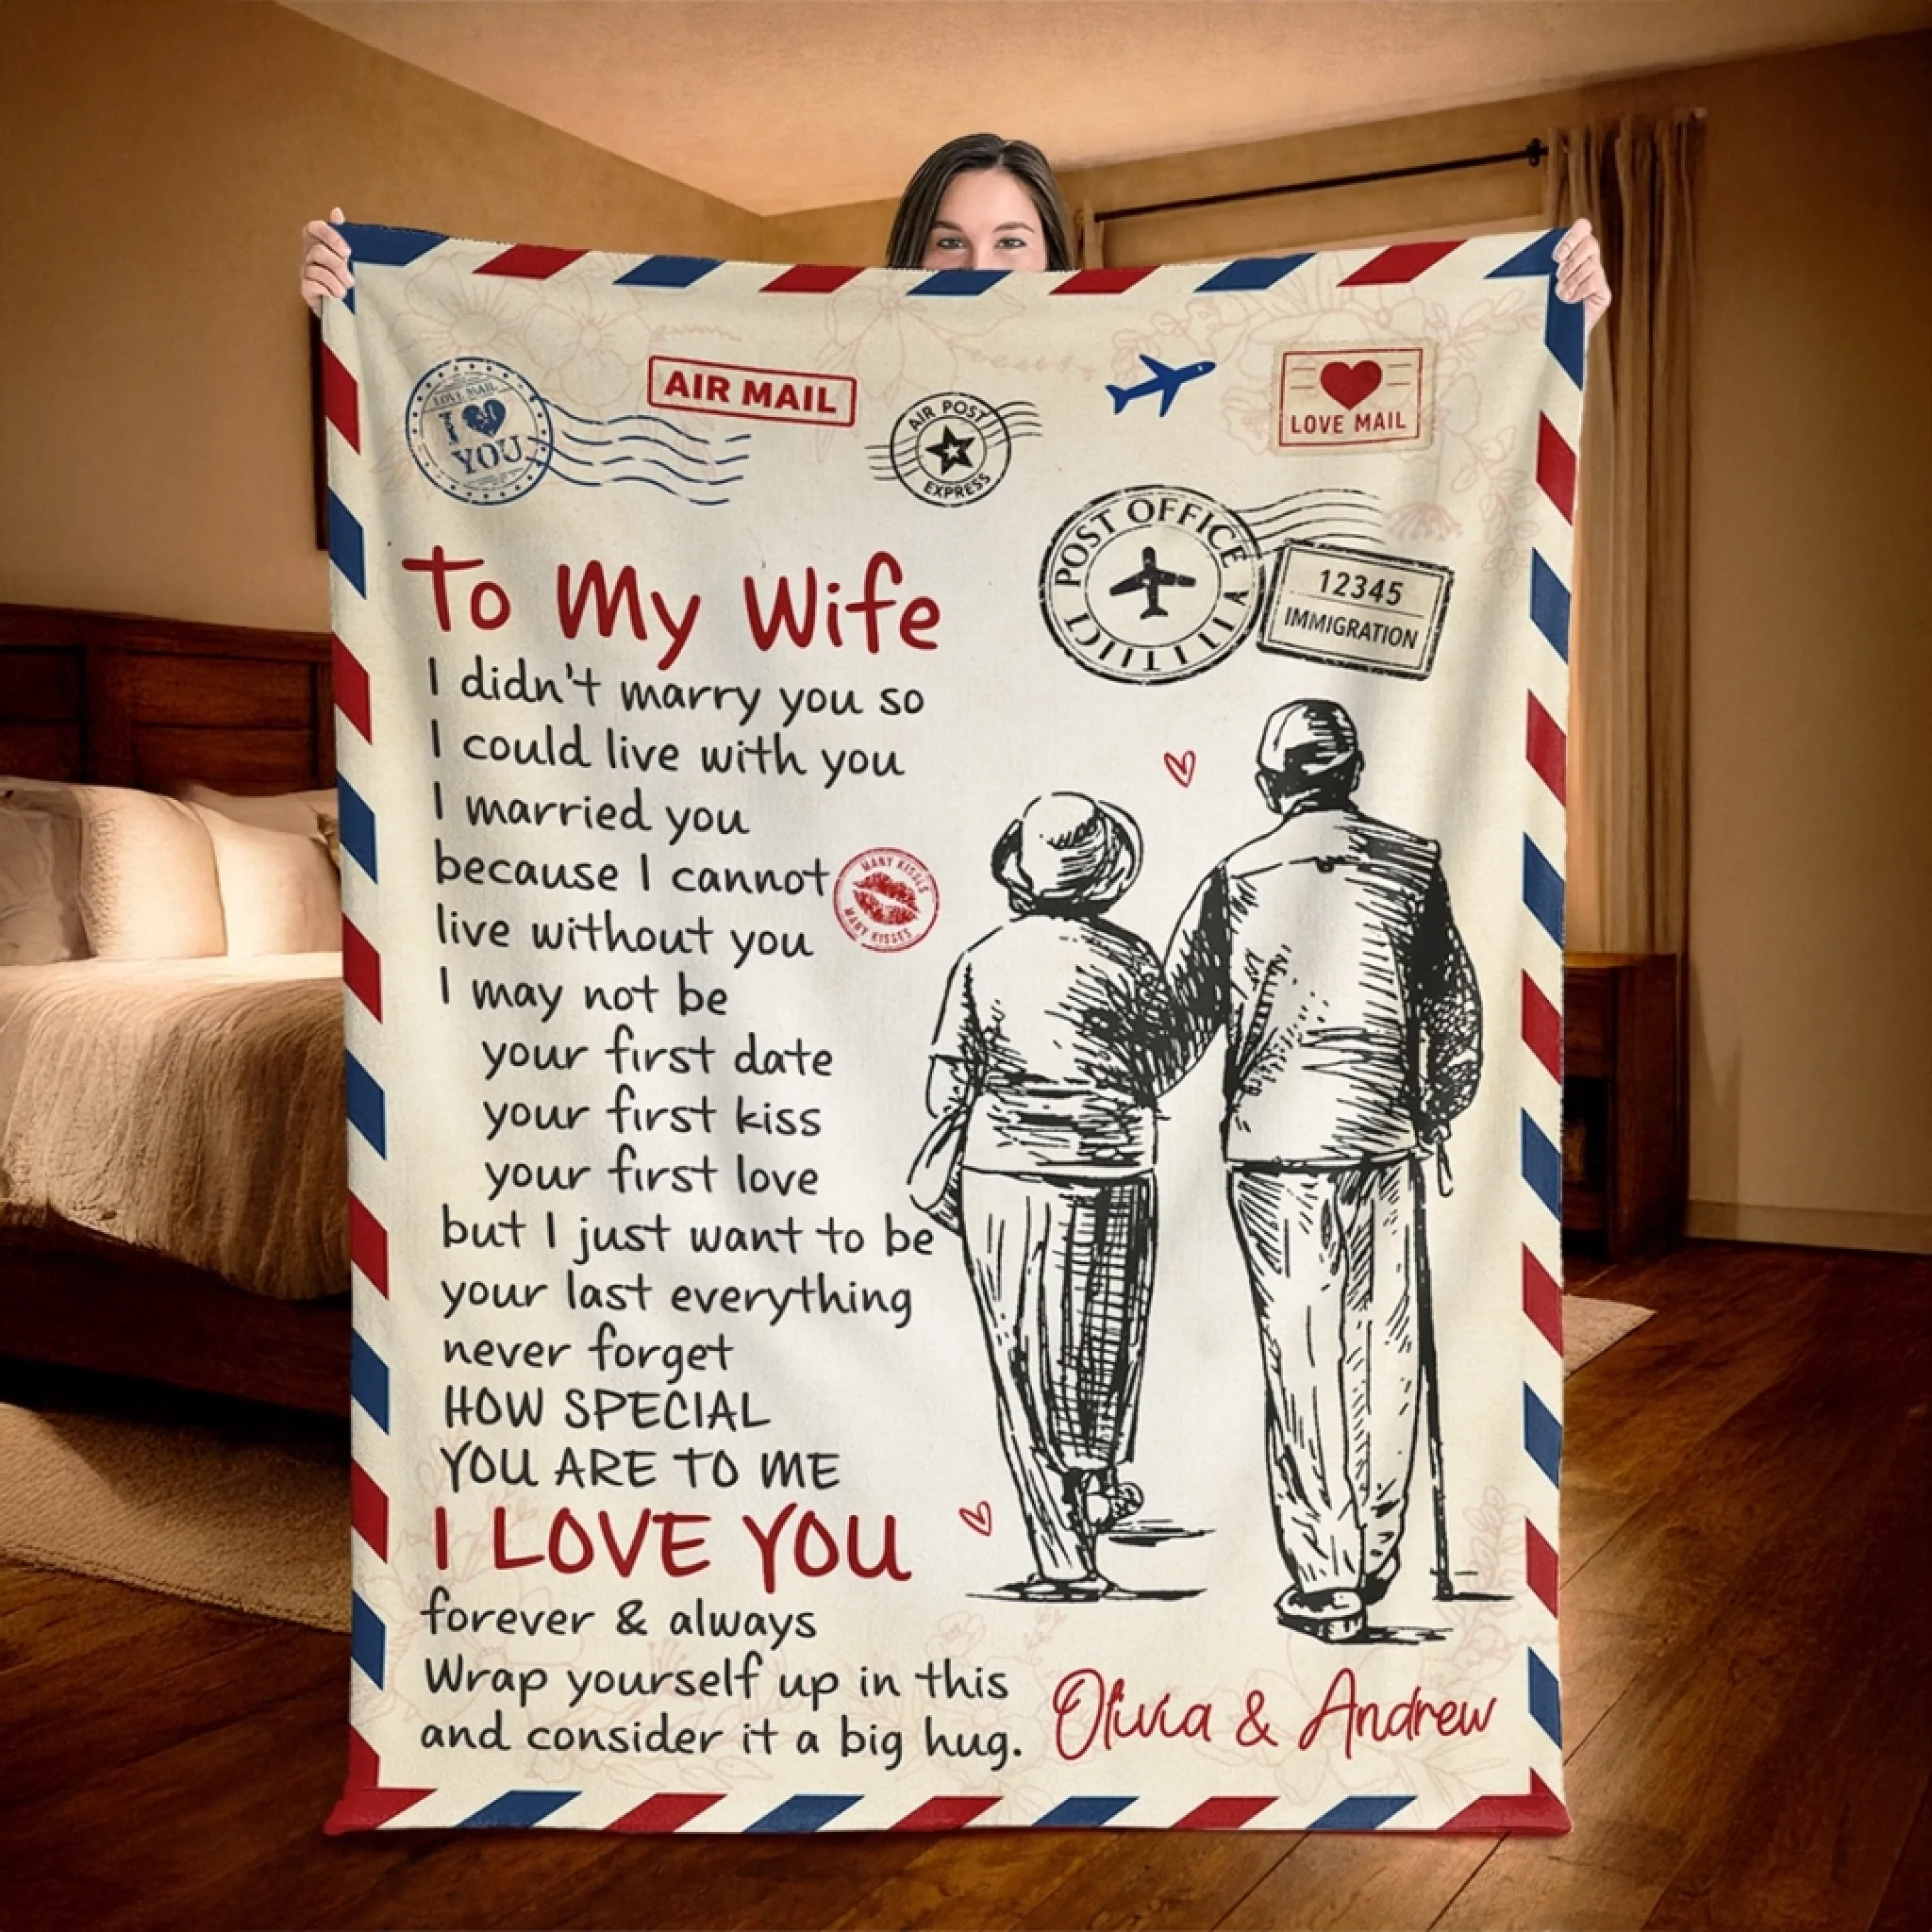 LOVE MAIL
I YOU
AIR MAIL
AIR POST
EXPRESS
LOVE MAIL
POST OFFICE
12345
IMMIGRATION
To My Wife
I didn't marry you so
I could live with you
I married you
because I cannot
live without you
MANY KISSES
MANY KISSES
I may not be
your first date
your first kiss
your first love
but I just want to be
your last everything
never forget
HOW SPECIAL
YOU ARE TO ME
I LOVE YOU
forever & always
Wrap yourself up in this
and consider it a big hug.
Olivia & Andrew